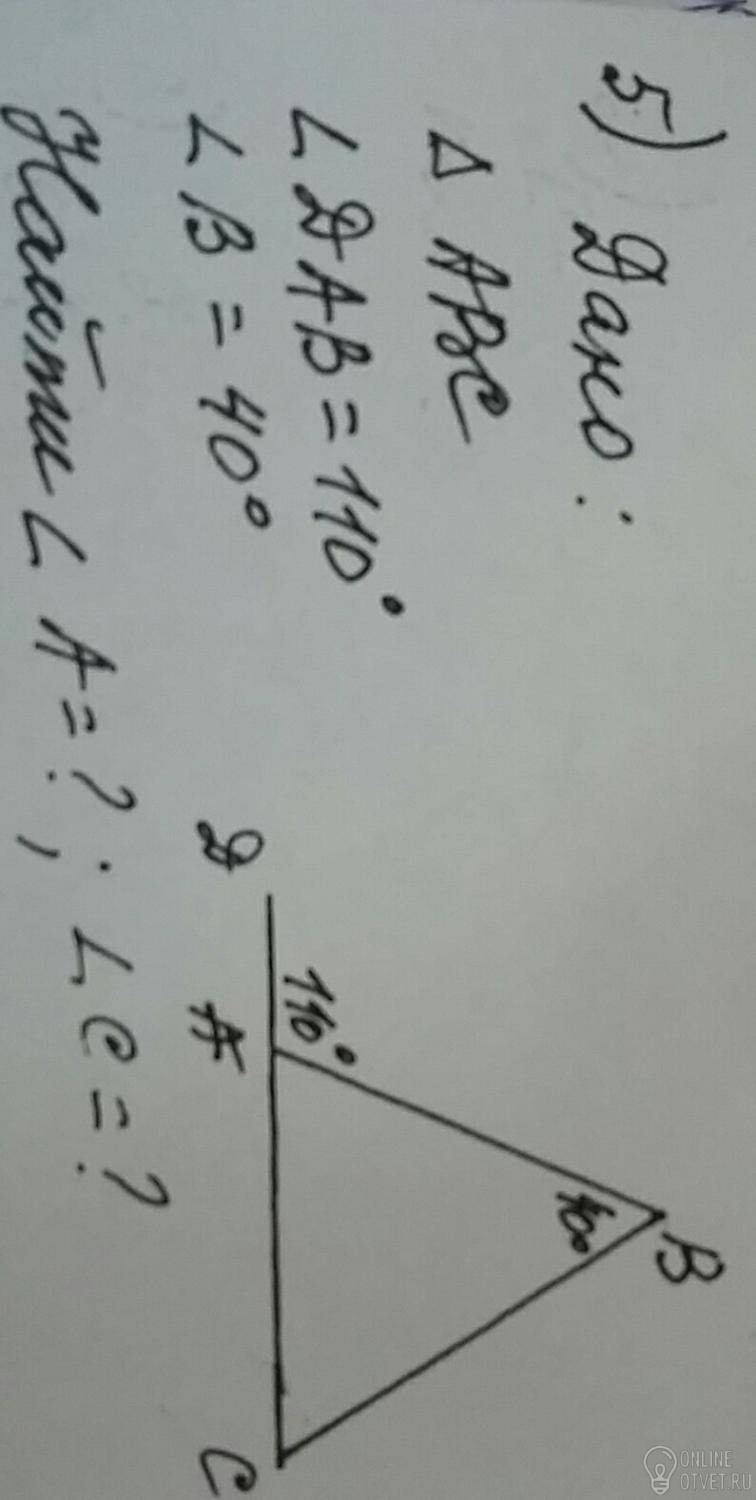 5) Дано:
Δ ABC
∠ DAB = 110°
∠ B = 40°
Найти ∠ A = ?; ∠ C = ?
B
40°
110°
D
A
C
ONLINE
OTVET.RU